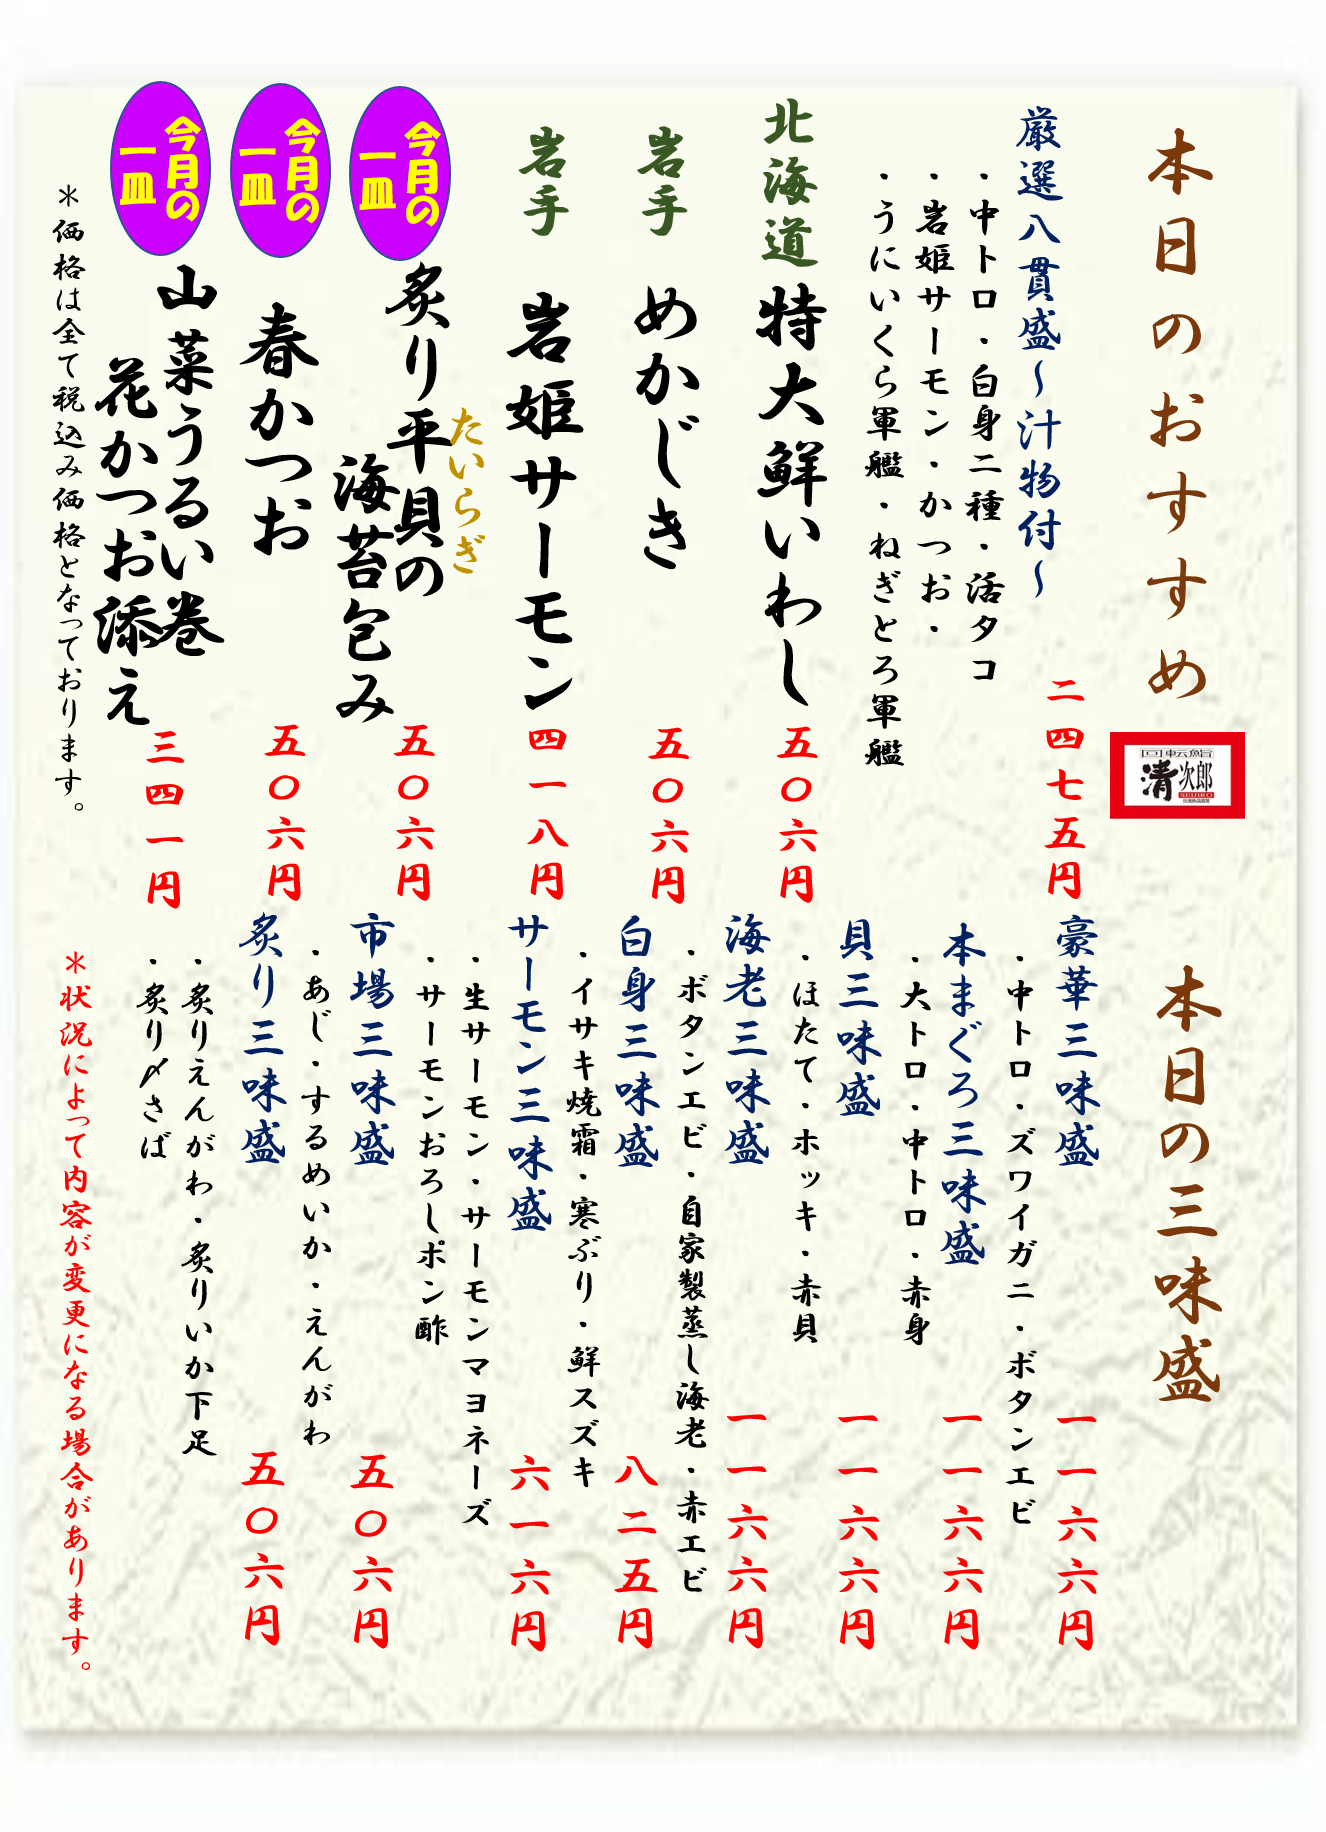 本日のおすすめ
回転鮨
清次郎
SEIJIRO
厳選八貫盛～汁物付～
二四七五円
・中トロ・白身二種・活タコ
・岩姫サーモン・かつお・
・うにいくら軍艦・ねぎとろ軍艦
北海道
特大鮮いわし
五〇六円
岩手
めかじき
五〇六円
岩手
岩姫サーモン
四一八円
今月の
一皿
たいらぎ
炙り平貝の
海苔包み
五〇六円
今月の
一皿
春かつお
五〇六円
今月の
一皿
山菜うるい巻
花かつお添え
三四一円
＊価格は全て税込み価格となっております。
本日の三味盛
豪華三味盛
一一六六円
・中トロ・ズワイガニ・ボタンエビ
本まぐろ三味盛
一一六六円
・大トロ・中トロ・赤身
貝三味盛
一一六六円
・ほたて・ホッキ・赤貝
海老三味盛
一一六六円
・ボタンエビ・自家製蒸し海老・赤エビ
白身三味盛
八二五円
・イサキ焼霜・寒ぶり・鮮スズキ
サーモン三味盛
六一六円
・生サーモン・サーモンマヨネーズ
・サーモンおろしポン酢
市場三味盛
五〇六円
・あじ・するめいか・えんがわ
炙り三味盛
五〇六円
・炙りえんがわ・炙りいか下足
・炙り〆さば
＊状況によって内容が変更になる場合があります。